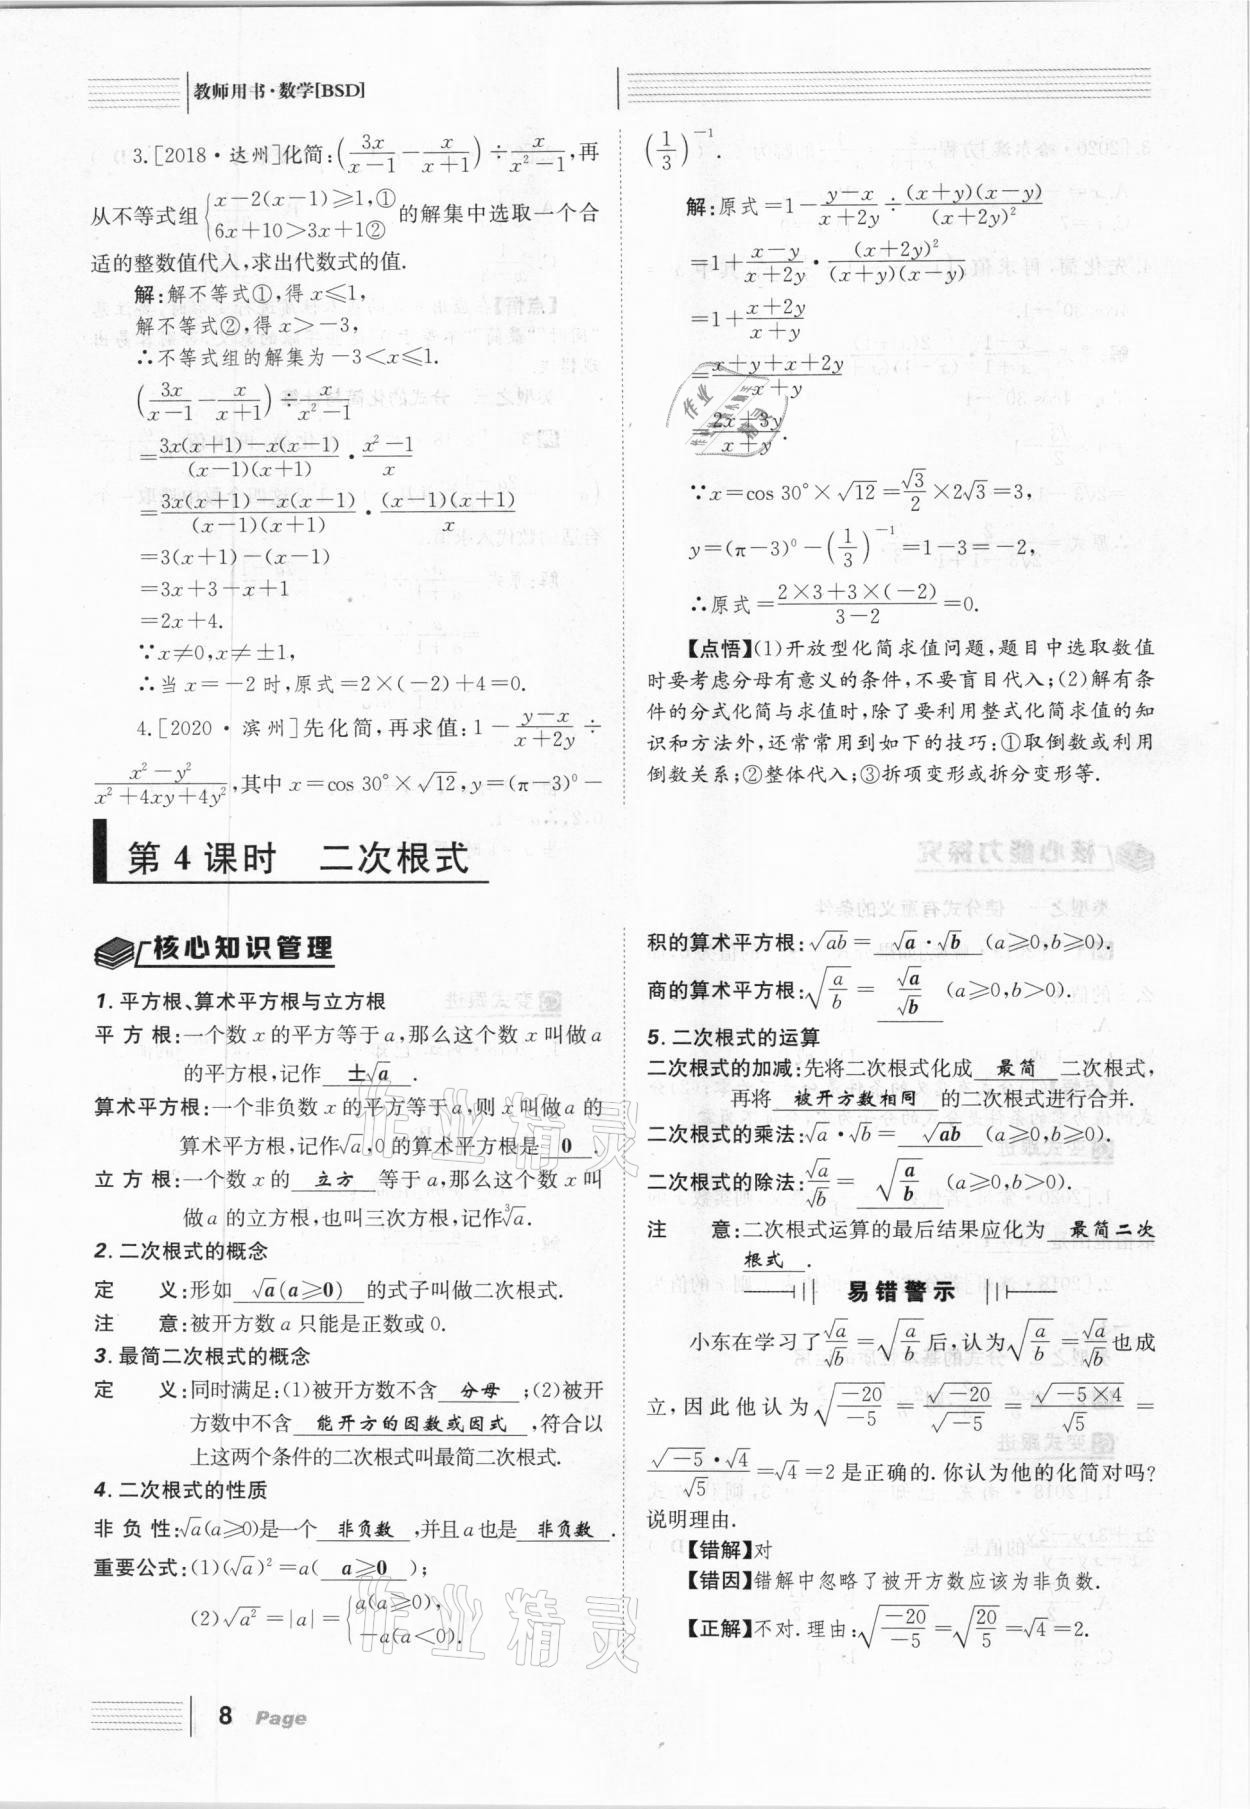 教师用书·数学[BSD]
3.[2018·达州]化简:(3x/(x-1) - x/(x+1)) ÷ x/(x²-1),再
从不等式组{x-2(x-1)≥1,① 6x+10>3x+1②的解集中选取一个合
适的整数值代入,求出代数式的值.
解:解不等式①,得 x≤1,
解不等式②,得 x>-3,
∴不等式组的解集为-3<x≤1.
(3x/(x-1) - x/(x+1)) ÷ x/(x²-1)
=(3x(x+1)-x(x-1))/((x-1)(x+1)) · (x²-1)/x
=(3x(x+1)-x(x-1))/((x-1)(x+1)) · ((x-1)(x+1))/x
=3(x+1)-(x-1)
=3x+3-x+1
=2x+4.
∵x≠0,x≠±1,
∴当 x=-2时,原式=2×(-2)+4=0.
4.[2020·滨州]先化简,再求值:1-(y-x)/(x+2y) ÷
(x²-y²)/(x²+4xy+4y²),其中 x=cos 30°×√12,y=(π-3)⁰-
(1/3)⁻¹.
解:原式=1-(y-x)/(x+2y) ÷ ((x+y)(x-y))/(x+2y)²
=1+(x-y)/(x+2y) · (x+2y)²/((x+y)(x-y))
=1+(x+2y)/(x+y)
=(x+y+x+2y)/(x+y)
=(2x+3y)/(x+y).
∵x=cos 30°×√12=√3/2×2√3=3,
y=(π-3)⁰-(1/3)⁻¹=1-3=-2,
∴原式=(2×3+3×(-2))/(3-2)=0.
【点悟】(1)开放型化简求值问题,题目中选取数值
时要考虑分母有意义的条件,不要盲目代入;(2)解有条
件的分式化简与求值时,除了要利用整式化简求值的知
识和方法外,还常常用到如下的技巧:①取倒数或利用
倒数关系;②整体代入;③拆项变形或拆分变形等.
第 4 课时 二次根式
核心知识管理
1. 平方根、算术平方根与立方根
平 方 根:一个数 x 的平方等于 a,那么这个数 x 叫做 a
的平方根,记作 ±√a .
算术平方根:一个非负数 x 的平方等于 a,则 x 叫做 a 的
算术平方根,记作√a,0 的算术平方根是 0 .
立 方 根:一个数 x 的 立方 等于 a,那么这个数 x 叫
做 a 的立方根,也叫三次方根,记作∛a.
2. 二次根式的概念
定 义:形如 √a(a≥0) 的式子叫做二次根式.
注 意:被开方数 a 只能是正数或 0.
3. 最简二次根式的概念
定 义:同时满足:(1)被开方数不含 分母 ;(2)被开
方数中不含 能开方的因数或因式 ,符合以
上这两个条件的二次根式叫最简二次根式.
4. 二次根式的性质
非 负 性:√a(a≥0)是一个 非负数 ,并且 a 也是 非负数 .
重要公式:(1)(√a)²=a( a≥0 );
(2)√a²=|a|={a(a≥0), -a(a<0).
积的算术平方根:√ab= √a·√b (a≥0,b≥0).
商的算术平方根:√(a/b)= √a/√b (a≥0,b>0).
5. 二次根式的运算
二次根式的加减:先将二次根式化成 最简 二次根式,
再将 被开方数相同 的二次根式进行合并.
二次根式的乘法:√a·√b= √ab (a≥0,b≥0).
二次根式的除法:√a/√b= √(a/b) (a≥0,b>0).
注 意:二次根式运算的最后结果应化为 最简二次
根式 .
易错警示
小东在学习了√a/√b=√(a/b)后,认为√(a/b)=√a/√b也成
立,因此他认为√(-20/-5)=√-20/√-5=√(-5×4)/√5=
(√-5·√4)/√5=√4=2是正确的.你认为他的化简对吗?
说明理由.
【错解】对
【错因】错解中忽略了被开方数应该为非负数.
【正解】不对.理由:√(-20/-5)=√(20/5)=√4=2.
8 Page
作业精灵
作业精灵